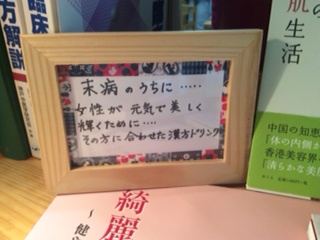 臨床
方解説
肌の
生活
未病のうちに‥‥‥
女性が元気で美しく
輝くために‥‥
その方に合わせた漢方ドリンク!!
中国の知恵
「体の内側か
香港美容界の
「清らかな美肌
綺麗
～健